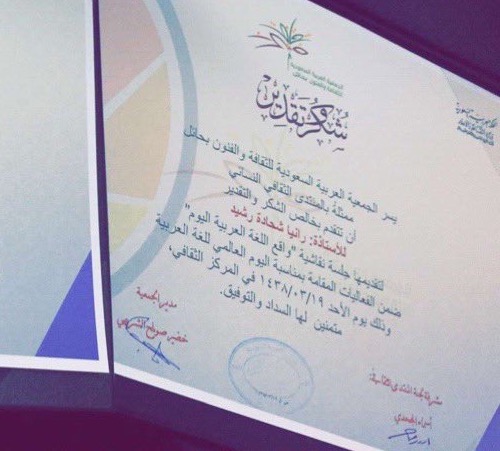 الجمعية العربية السعودية
للثقافة والفنون بحائل
شكر وتقدير
يسر الجمعية العربية السعودية للثقافة والفنون بحائل
ممثلة بالمنتدى الثقافي النسائي
أن تتقدم بخالص الشكر والتقدير
للأستاذة: رانيا شحادة رشيد
لتقديمها جلسة نقاشية "واقع اللغة العربية اليوم"
ضمن الفعاليات المقامة بمناسبة اليوم العالمي للغة العربية
وذلك يوم الأحد ١٤٣٨/٠٣/١٩ في المركز الثقافي،
متمنين لها السداد والتوفيق.
مشرفة لجنة المنتدى الثقافية:
أسماء الجميدي
مدير الجمعية
خضير صويلح الشريهي